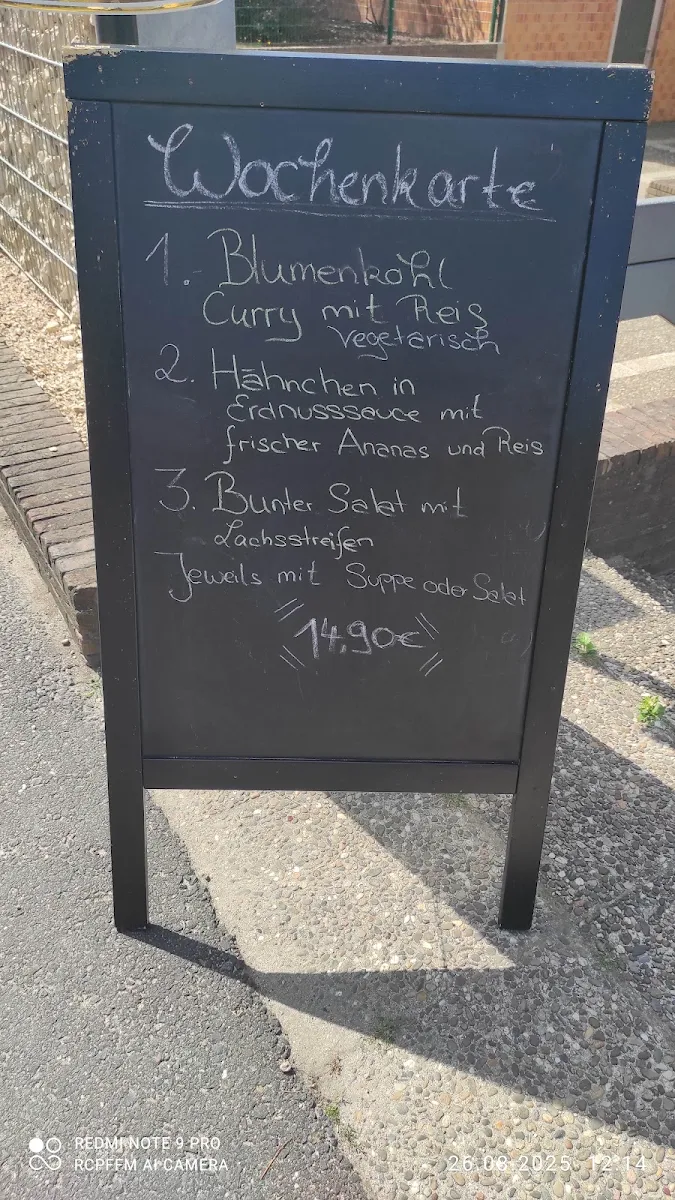 Wochenkarte
1. Blumenkohl
Curry mit Reis
vegetarisch
2. Hähnchen in
Erdnusssauce mit
frischer Ananas und Reis
3. Bunter Salat mit
Lachsstreifen
Jeweils mit Suppe oder Salat
14,90€
REDMI NOTE 9 PRO
RCPFFM AI CAMERA
26.08.2025 12:14